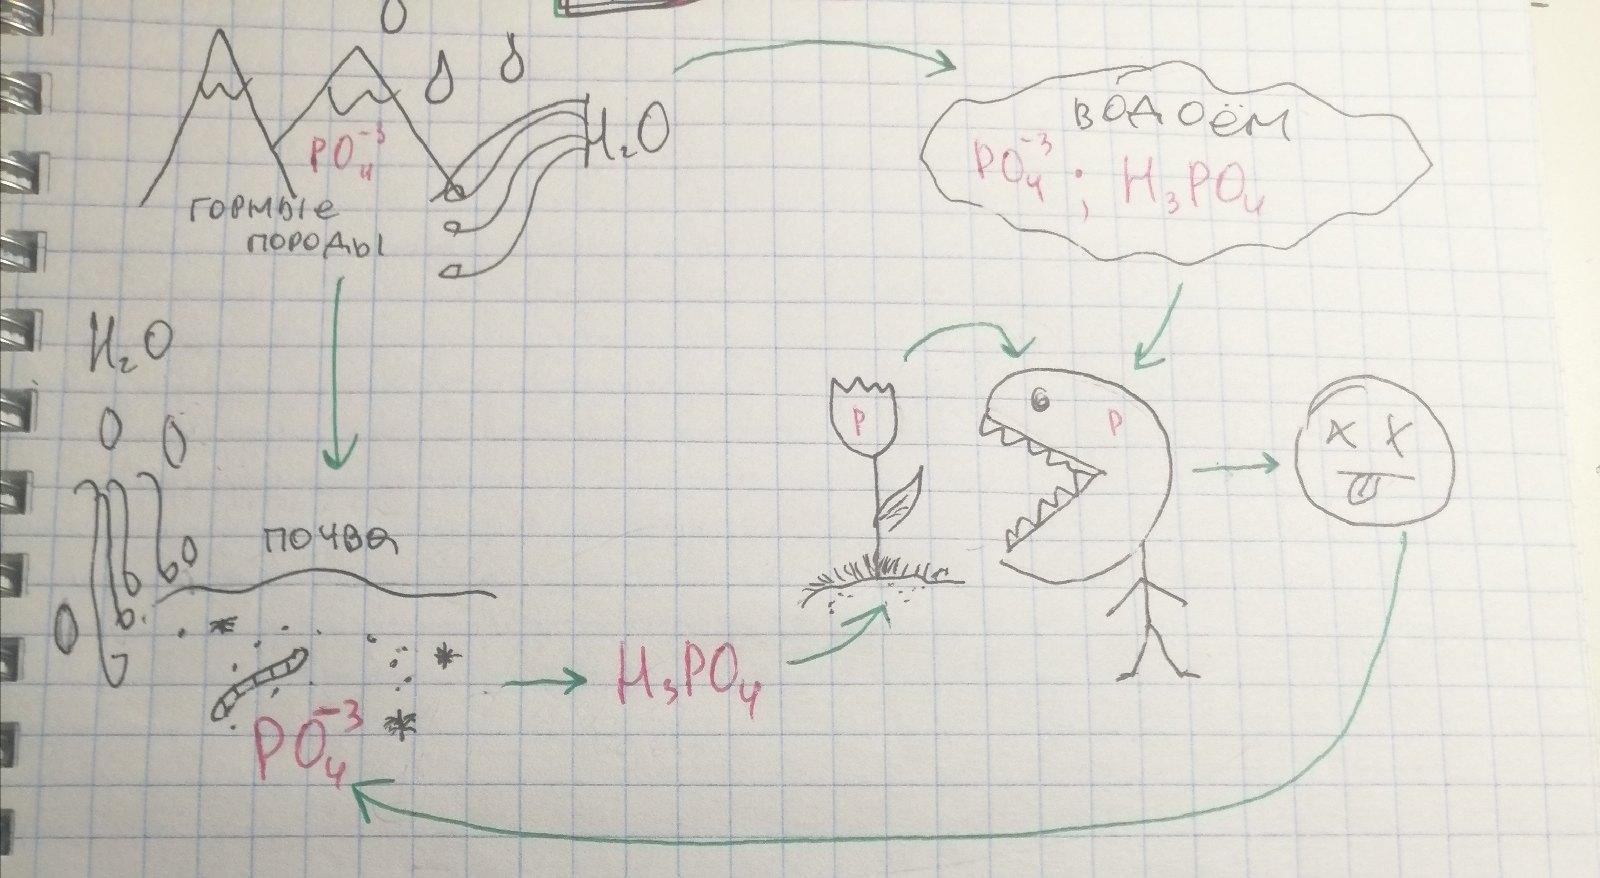 PO₄⁻³
горные
породы
H₂O
водоём
PO₄⁻³ ; H₃PO₄
H₂O
P
P
почва
H₃PO₄
PO₄⁻³